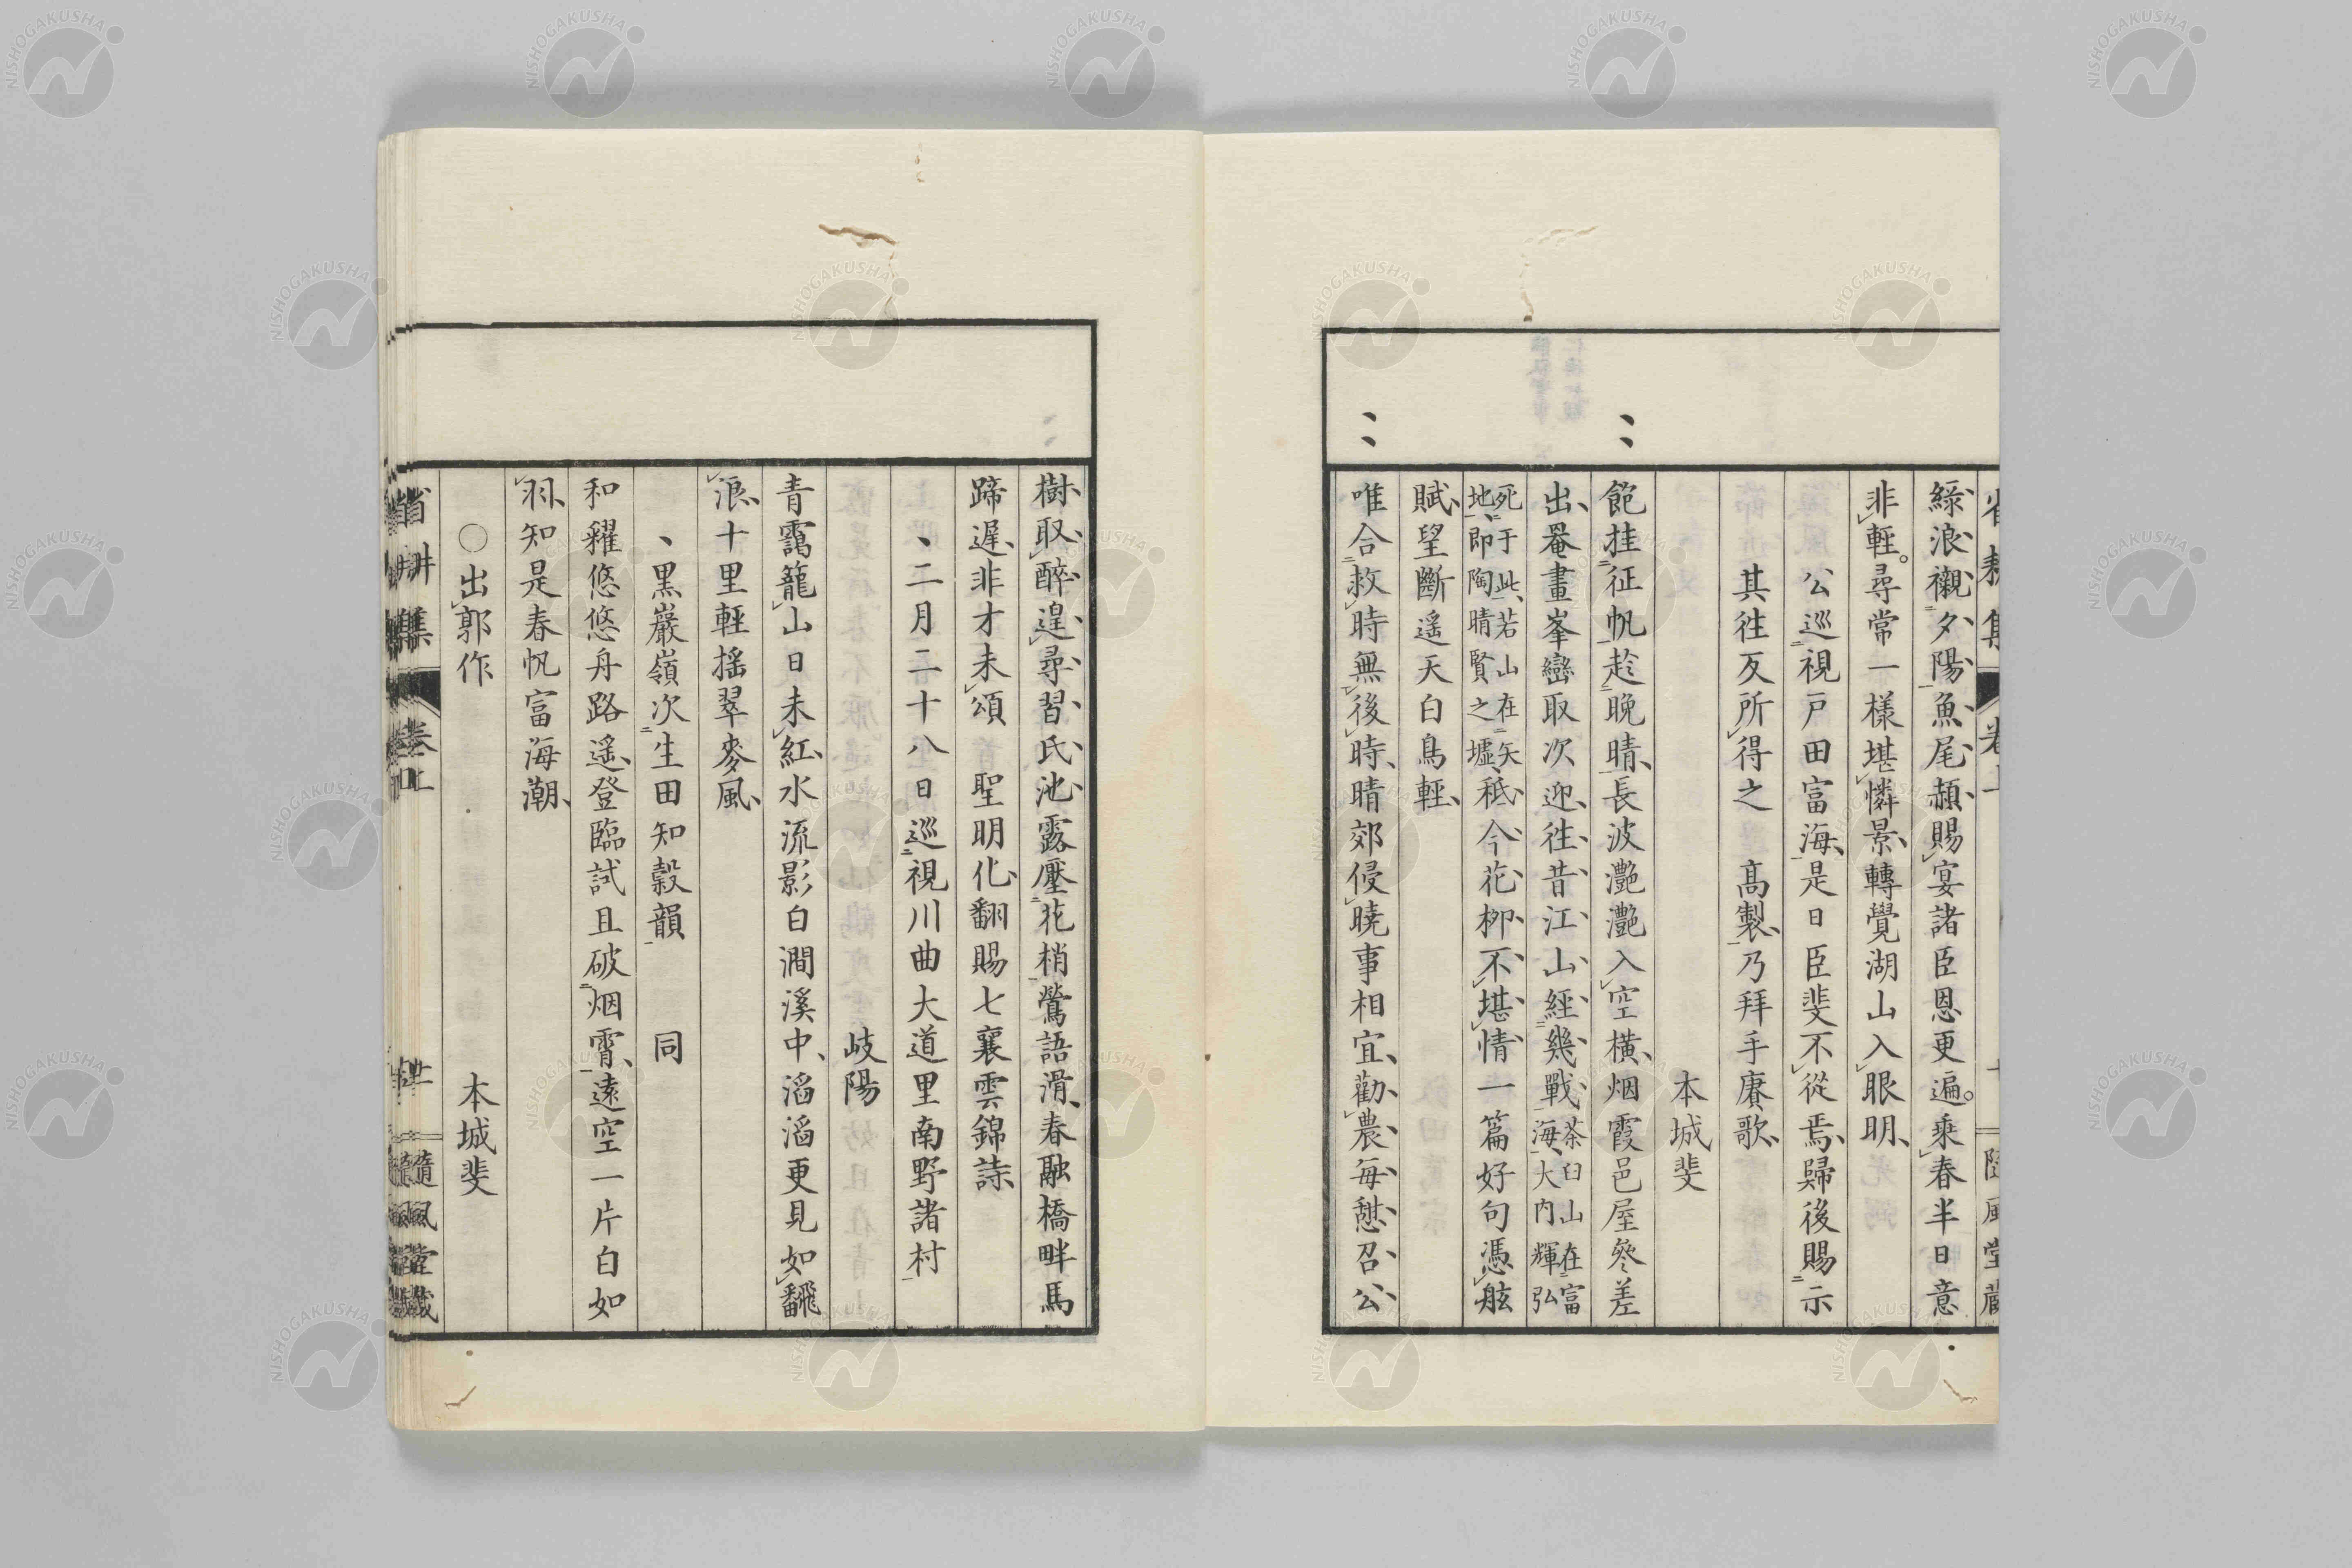 綠浪襯夕陽魚尾赬賜宴諸臣恩更遍。乘春半日意
非輕。尋常一樣堪憐景轉覺湖山入眼明
公巡視戸田富海是日臣斐不從焉歸後賜示
其徃反所得之 高製乃拜手賡歌
本城斐
飽挂征帆趁晚晴長波灔灔入空橫烟霞邑屋參差
出罨畫峯巒取次迎徃昔江山經幾戰茶臼山在富海大内輝弘
死于此若山在矢地即陶晴賢之墟秪今花柳不堪情一篇好句憑舷
賦望斷遥天白鳥輕
唯合救時無後時晴郊侵曉事相宜勸農每憇召公
樹取醉遑尋習氏池露壓花梢鶯語滑春融橋畔馬
蹄遲非才未頌 聖明化翻賜七襄雲錦詩
二月二十八日巡視川曲大道里南野諸村
岐陽
青靄籠山日未紅水流影白澗溪中滔滔更見如飜
浪十里輕搖翠麥風
黑巖嶺次生田知穀韻 同
和糴悠悠舟路遥登臨試且破烟霄遠空一片白如
羽知是春帆富海潮
○出郭作 本城斐
省耕集 卷上 隨風堂藏